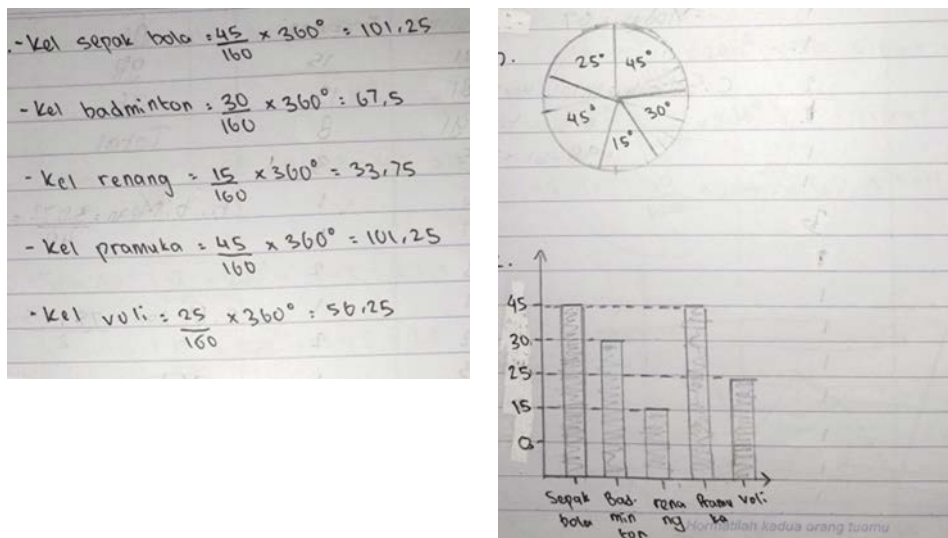 - Kel sepak bola = 45/160 × 360° = 101,25
- Kel badminton = 30/160 × 360° = 67,5
- Kel renang = 15/160 × 360° = 33,75
- Kel pramuka = 45/160 × 360° = 101,25
- Kel voli = 25/160 × 360° = 56,25
25° 45°
45° 30°
15°
45
30
25
15
0
Sepak bola
Bad. min ton
rena ng
Pramu ka
voli
Hormatilah kedua orang tuamu